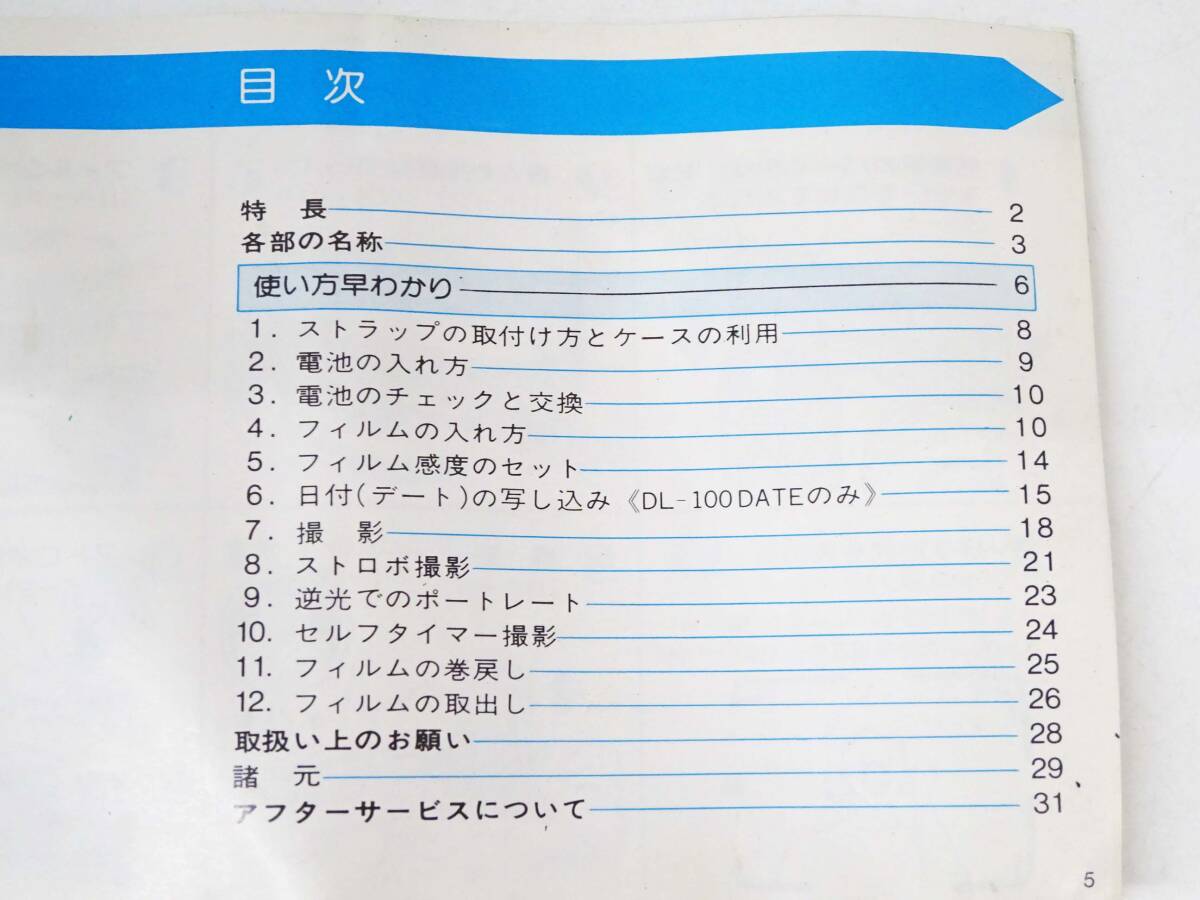 目 次
特 長 2
各部の名称 3
使い方早わかり 6
1. ストラップの取付け方とケースの利用 8
2. 電池の入れ方 9
3. 電池のチェックと交換 10
4. フィルムの入れ方 10
5. フィルム感度のセット 14
6. 日付(デート)の写し込み《DL-100DATEのみ》 15
7. 撮 影 18
8. ストロボ撮影 21
9. 逆光でのポートレート 23
10. セルフタイマー撮影 24
11. フィルムの巻戻し 25
12. フィルムの取出し 26
取扱い上のお願い 28
諸 元 29
アフターサービスについて 31
5